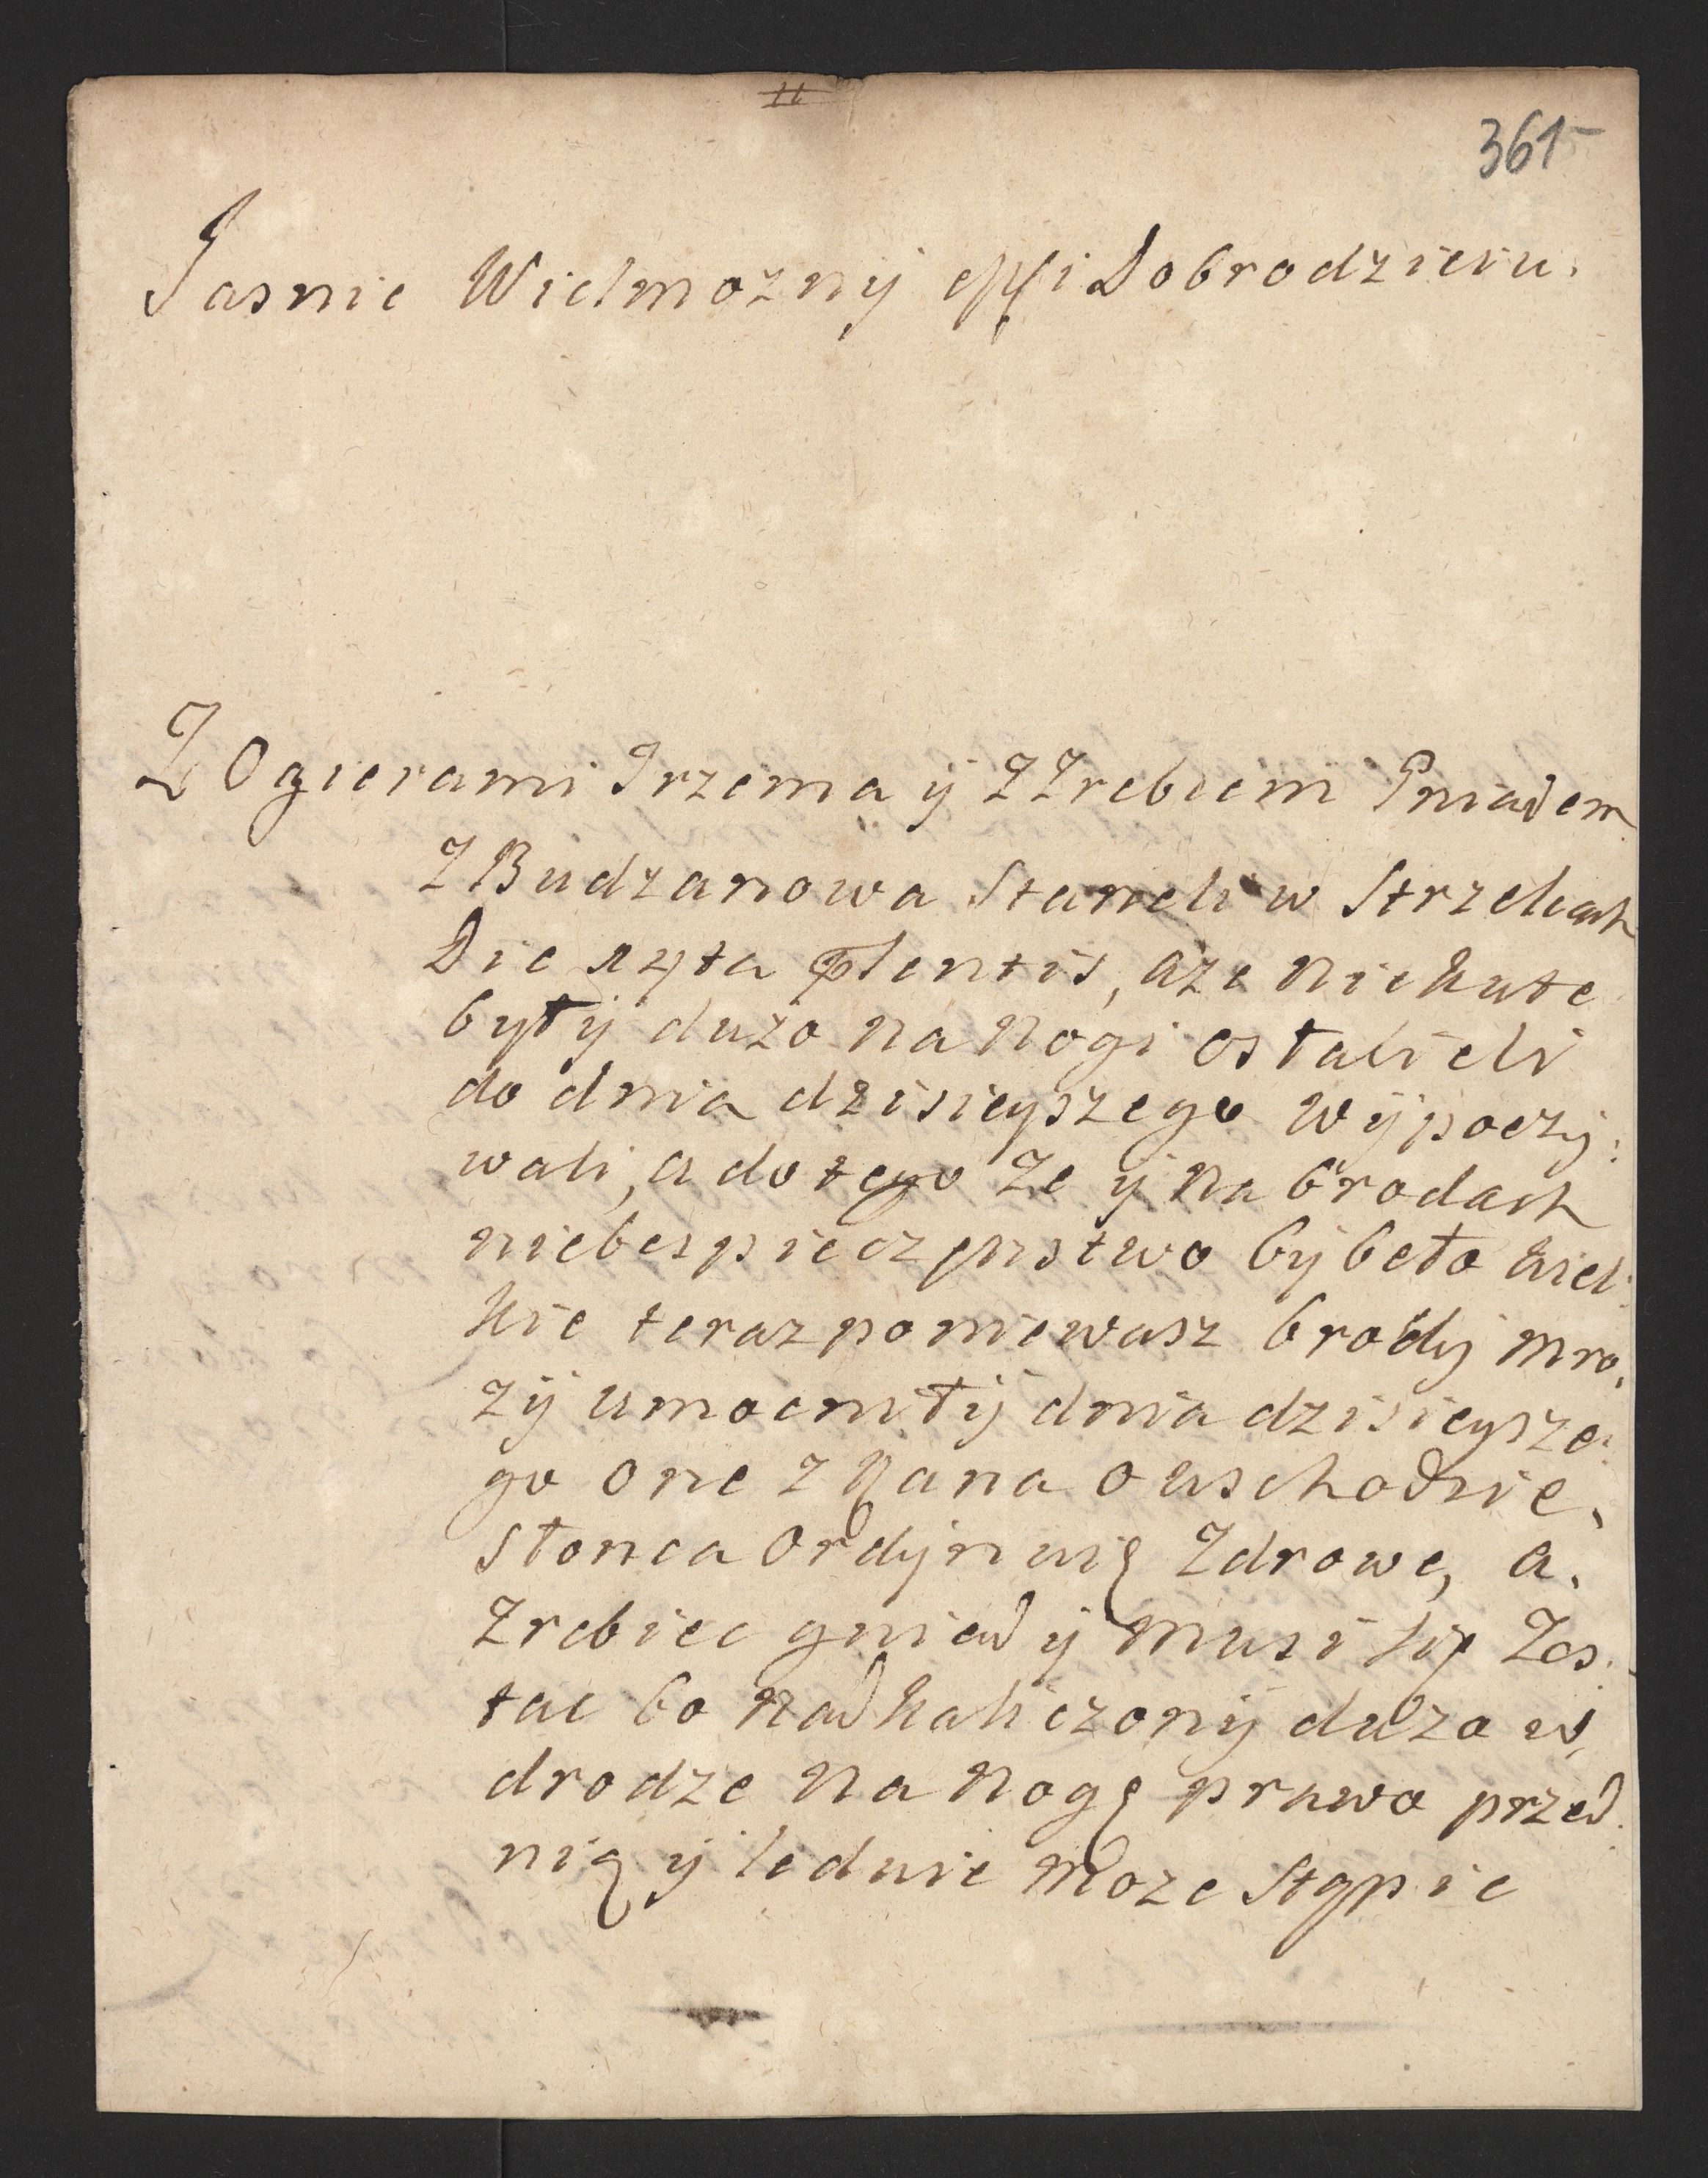 361
Jasnie Wielmozny Mſci Dobrodzieiu.
Z Ogierami Trzema y z Zrebcem Gniadem
z Budzanowa Staneli w Strzelcach
Die 29ta, aże niekute
były duzo na nogi ostabieli
do dnia dzisieyszego wypoczy:
wali, a do tego ze y na brodach
niebespieczenstwo by beło wiel:
kie teraz poniewasz brody mro,
zy umocniły dnia dzisieysze:
go one z Rana o wschodzie,
słonca Ordynuię Zdrowe, a.
Zrebiec gniady musi się Zos:
tac bo nadkaliczony duzo w,
drodze na nogę prawo przed:
nią y ledwie moze stąpic